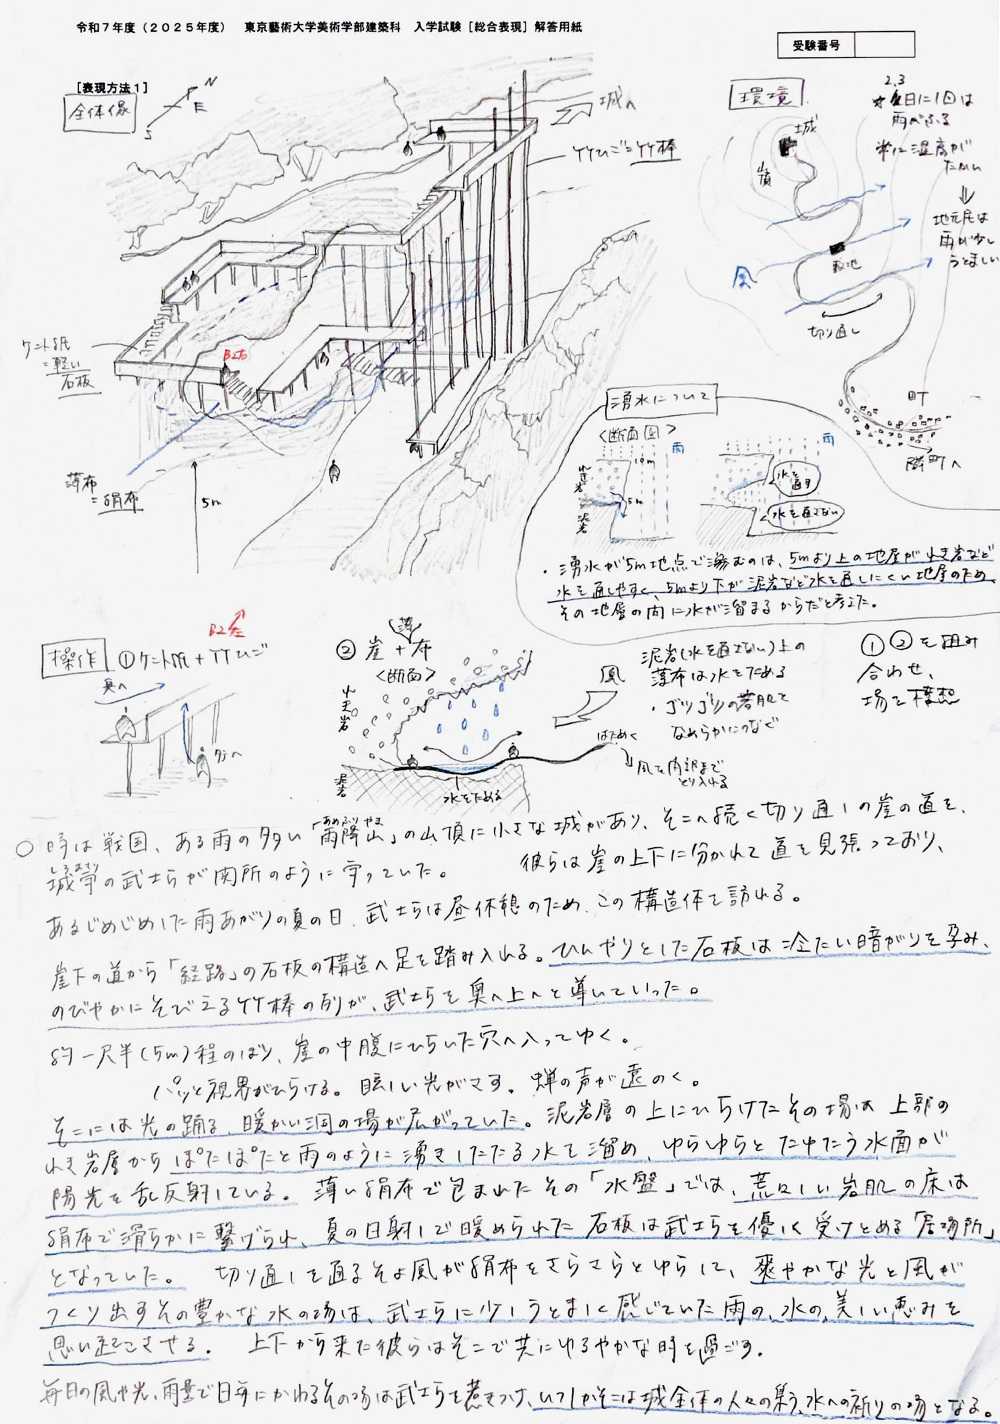 令和7年度(2025年度) 東京藝術大学美術学部建築科 入学試験[総合表現]解答用紙
受験番号
[表現方法1]
全体像
N
E
S
城へ
竹ひご=竹棒
ケント紙
=軽い
石板
B2右
薄布
=絹布
5m
環境
2,3
日に1回は
雨がふる
常に湿度が
たかい
地元民は
雨が少し
うとましい
城
山頂
敷地
風
切り通し
町
隣町へ
湧水について
<断面図>
雨
雨
10m
5m
れき岩
泥岩
水を
通す
水を通さない
・湧水が5m地点で滲むのは、5mより上の地層がれき岩など
水を通しやすく、5mより下が泥岩など水を通しにくい地層のため、
その地層の間に水が溜まるからだと考えた。
操作
①ケント紙+竹ひご
B2左
奥へ
②崖+薄布
<断面>
れき岩
泥岩
水をためる
風
はためく
風を内部まで
とり入れる
泥岩(水を通さない)上の
薄布は水をためる
・ゴツゴツの岩肌を
なめらかにつなぐ
①②を組み
合わせ、
場を構想
○時は戦国、ある雨の多い「雨降山」の山頂に小さな城があり、そこへ続く切り通しの崖の道を、
あめふりやま
の武士らが関所のように守っていた。 彼らは崖の上下に分かれて道を見張っており、
あるじめじめした雨あがりの夏の日、武士らは昼休憩のため、この構造体を訪れる。
崖下の道から「経路」の石板の構造へ足を踏み入れる。ひんやりとした石板は冷たい暗がりを孕み、
のびやかにそびえる竹棒の列が、武士らを奥へ上へと導いていった。
約一尺半(5m)程のぼり、崖の中腹にひらいた穴へ入ってゆく。
パッと視界がひらける。眩しい光がさす。蝉の声が遠のく。
そこには光の踊る、暖かい洞の場が広がっていた。泥岩層の上にひらけたその場は上部の
れき岩層からぽたぽたと雨のように湧きしたたる水を溜め、ゆらゆらとたゆたう水面が
陽光を乱反射している。薄い絹布で包まれたその「水盤」では、荒々しい岩肌の床は
絹布で滑らかに繋げられ、夏の日射しで暖められた石板は武士らを優しく受けとめる「居場所」
となっていた。 切り通しを通るそよ風が絹布をさらさらとゆらして、爽やかな光と風が
つくり出すその豊かな水の場は、武士らに少しうとましく感じていた雨の、水の、美しい恵みを
思い起こさせる。 上下から来た彼らはそこで共にゆるやかな時を過ごす。
毎日の風や光、雨量で日毎にかわるその場は武士らを惹きつけ、いつしかそこは城全体の人々の集う、水への祈りの場となる。